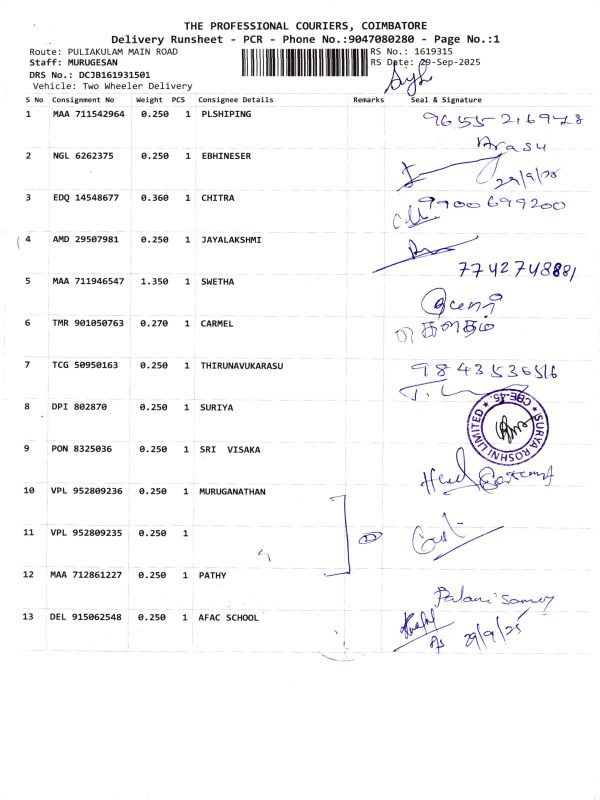 THE PROFESSIONAL COURIERS, COIMBATORE
Delivery Runsheet - PCR - Phone No.:9047080280 - Page No.:1
Route: PULIAKULAM MAIN ROAD RS No.: 1619315
Staff: MURUGESAN RS Date: 29-Sep-2025
DRS No.: DCJB161931501
Vehicle: Two Wheeler Delivery
S No Consignment No Weight PCS Consignee Details Remarks Seal & Signature
1 MAA 711542964 0.250 1 PLSHIPING
Arasu
2 NGL 6262375 0.250 1 EBHINESER
29/9/25
3 EDQ 14548677 0.360 1 CHITRA 9900699200
4 AMD 29507981 0.250 1 JAYALAKSHMI
7742748881
5 MAA 711946547 1.350 1 SWETHA
6 TMR 901050763 0.270 1 CARMEL
கௌதம்
7 TCG 50950163 0.250 1 THIRUNAVUKARASU 9843536516
8 DPI 802870 0.250 1 SURIYA
SURYA ROSHNI LIMITED CBE-45.
9 PON 8325036 0.250 1 SRI VISAKA
10 VPL 952809236 0.250 1 MURUGANATHAN
11 VPL 952809235 0.250 1
12 MAA 712861227 0.250 1 PATHY
Palanisamy
13 DEL 915062548 0.250 1 AFAC SCHOOL
29/9/25